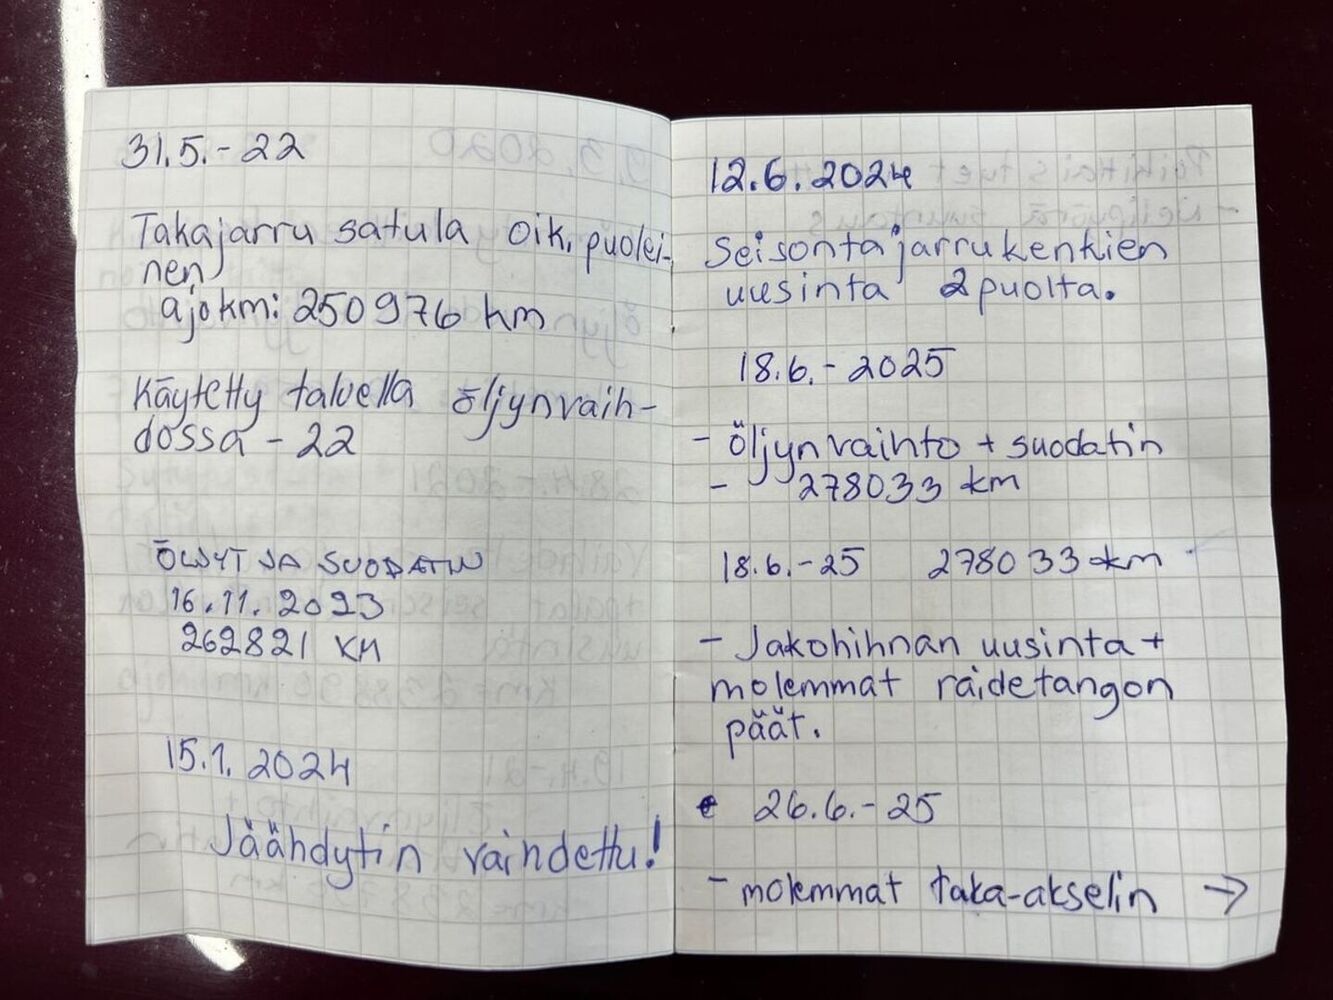 31.5.-22
Takajarru satula oik. puolei-
nen
ajokm: 250976 km
Käytetty talvella öljynvaih-
dossa - 22
ÖLJYT JA SUODATIN
16.11.2023
262821 KM
15.1.2024
Jäähdytin vaihdettu!
12.6.2024
Seisontajarrukenkien
uusinta 2 puolta.
18.6.-2025
- öljynvaihto + suodatin
- 278033 km
18.6.-25 278033 km
- Jakohihnan uusinta +
molemmat raidetangon
päät.
26.6.-25
- molemmat taka-akselin →